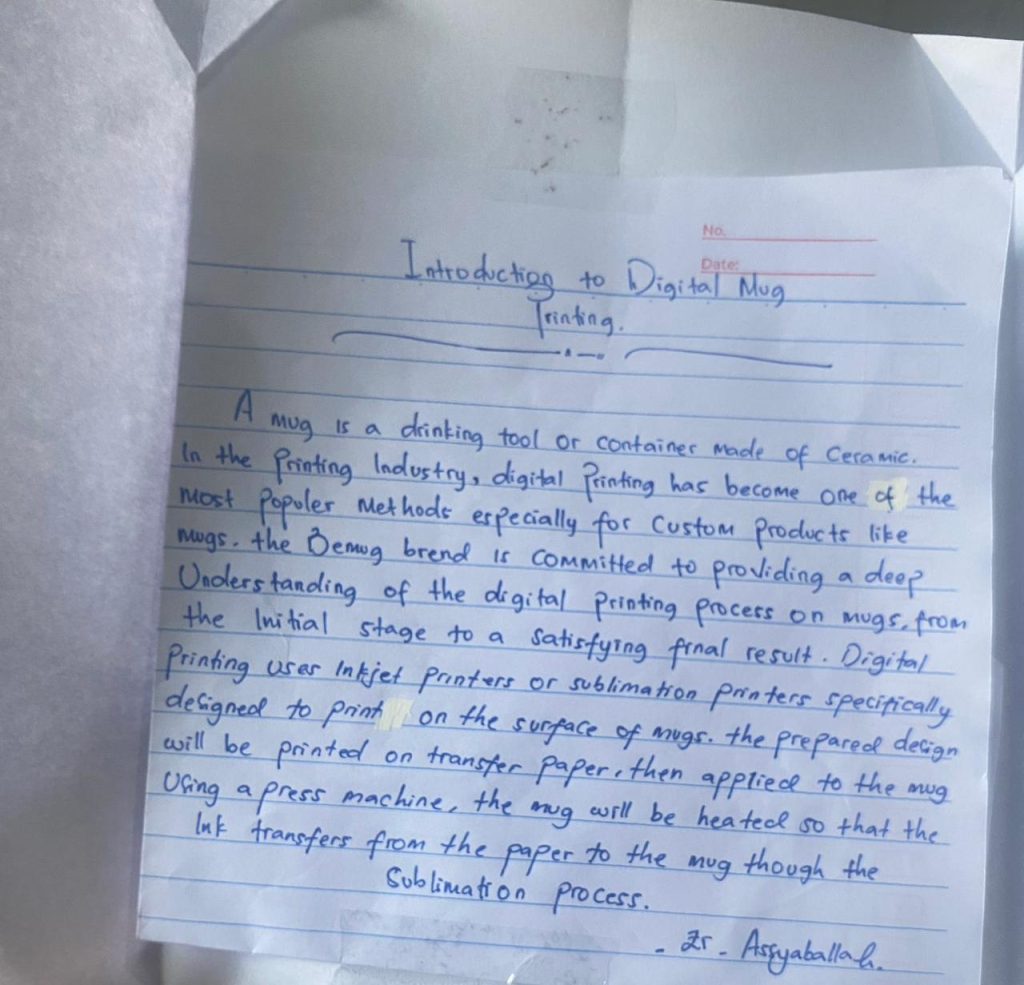 No.
Date:
Introduction to Digital Mug
Printing.
A mug is a drinking tool or container made of Ceramic.
In the Printing Industry, digital Printing has become one of the
most Populer Methods especially for Custom Products like
mugs. the Bemug brend is committed to providing a deep
Understanding of the digital printing process on mugs, from
the Initial stage to a satisfying final result. Digital
Printing uses Inkjet printers or sublimation printers specifically
designed to print on the surface of mugs. the prepared design
will be printed on transfer paper, then applied to the mug
Using a press machine, the mug will be heated so that the
Ink transfers from the paper to the mug though the
Sublimation process.
- Zr - Assyaballah.